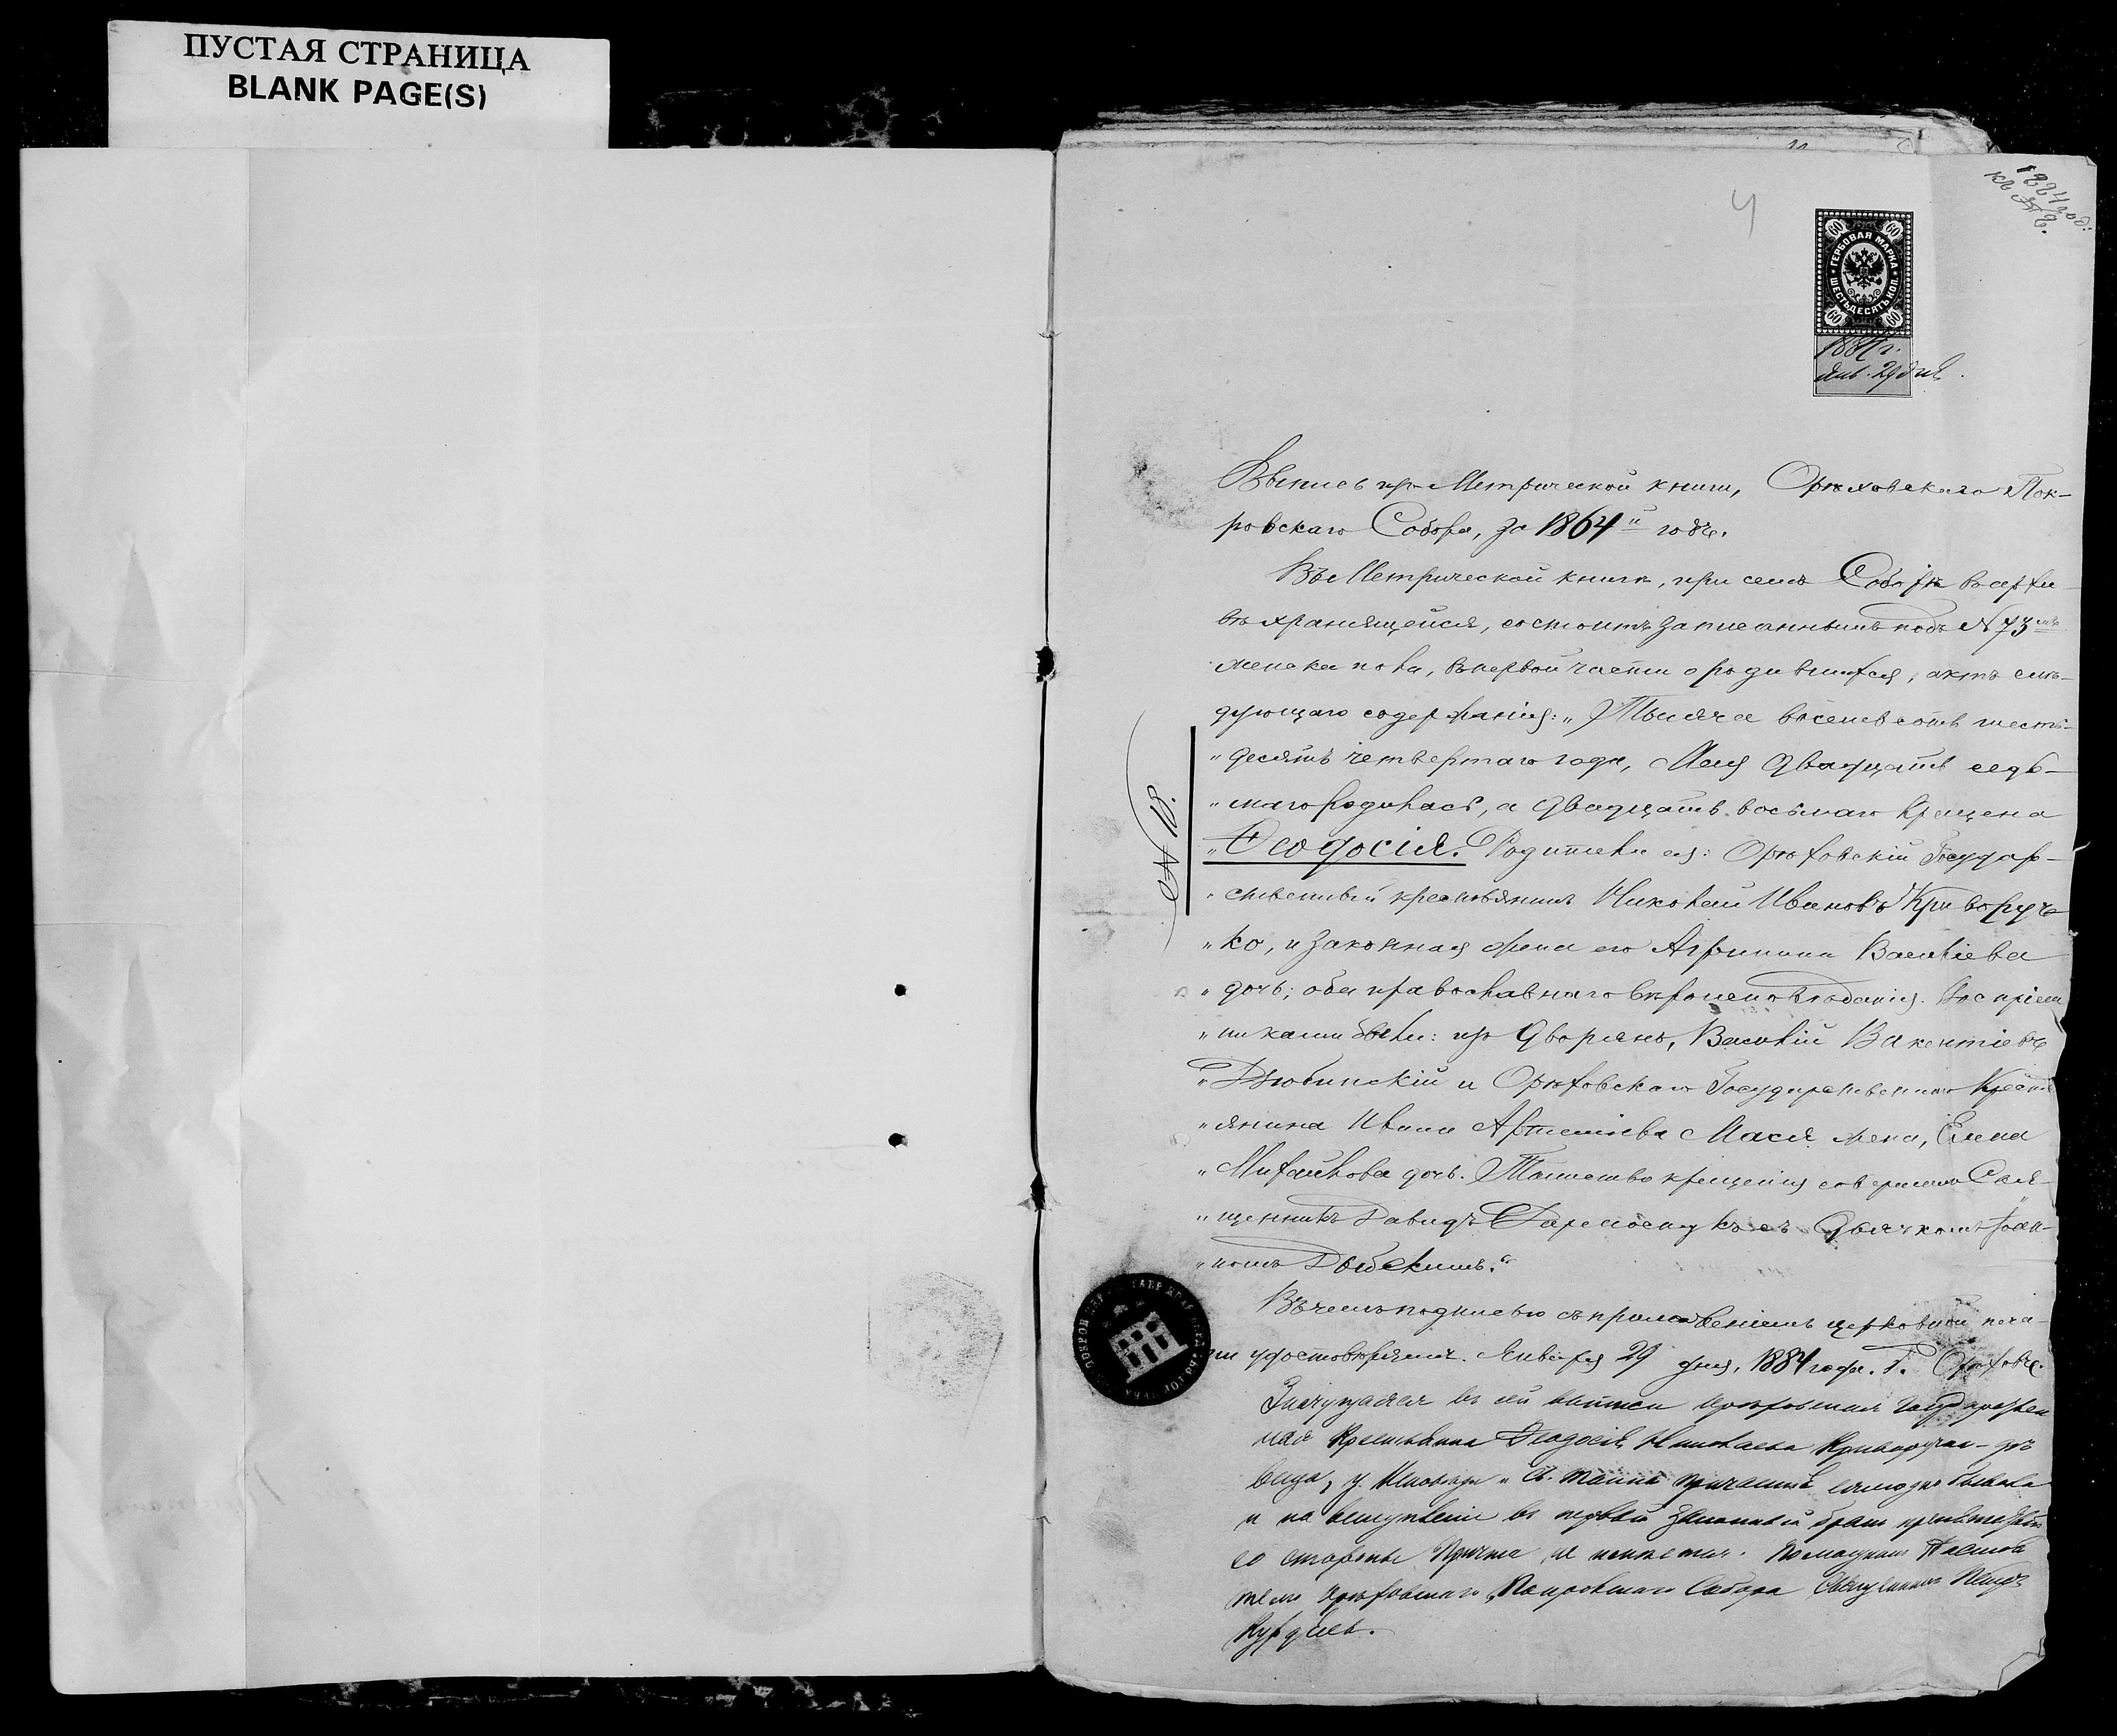 ПУСТАЯ СТРАНИЦА
BLANK PAGE(S)
4
ГЕРБОВАЯ МАРКА
ШЕСТЬДЕСЯТЪ КОП.
60 60
60 60
1884 г.
Янв. 29 дня.
Выпись изъ Метрической книги, Орѣховскаго Пок-
ровскаго Собора, за 1864й годъ.
Въ Метрической книгѣ, при семъ Соборѣ въ архи-
вѣ хранящейся, состоитъ записаннымъ подъ №73мъ
женска пола, въ первой части о родившихся, актъ слѣ-
дующаго содержанія: „Тысяча восемьсотъ шесть-
„десятъ четвертаго года, Мая двадцать седь-
„маго родилась, а двадцать восьмаго крещена
„Ѳеодосія. Родители ея: Орѣховскій Государ-
„ственный крестьянинъ Николай Ивановъ Криворуч-
„ко, и законная жена его Агрипина Васильева
„дочь; оба православнаго вѣроисповѣданія. Воспріем-
„никами были: изъ дворянъ, Василій Викентіевъ
„Дзюбинскій и Орѣховскаго Государственнаго Кресть-
„янина Ивана Артеміева Мася жена, Елена
„Михайлова дочь. Таинство крещенія совершилъ Свя-
„щенникъ Давидъ съ Дьячкомъ Іоан-
„номъ
Въ чемъ подписью съ приложеніемъ церковной печа-
ти удостовѣряемъ. Января 29 дня, 1884 года. Г. Орѣховъ.
Значущаяся въ сей выписи Орѣховская Государствен
ная Крестьянка Ѳеодосія Николаева Криворучко - дѣ
вица, у Исповѣди и Св. таинъ причастія ежегодно бывала
и на вступленіе въ первый законный бракъ препятствій
со стороны Причта не имѣется. Помощникъ Настоя
теля Орѣховскаго Покровскаго Собора Священникъ Петръ